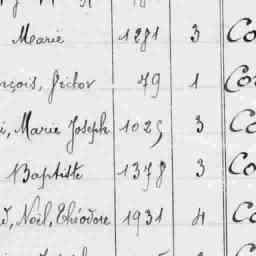 Marie 1281 3 Co
nçois, Victor 79 1 Co
i, Marie Joseph 1025 3 Co
Baptiste 1378 3 Co
Noël, Théodore 1931 4 Co